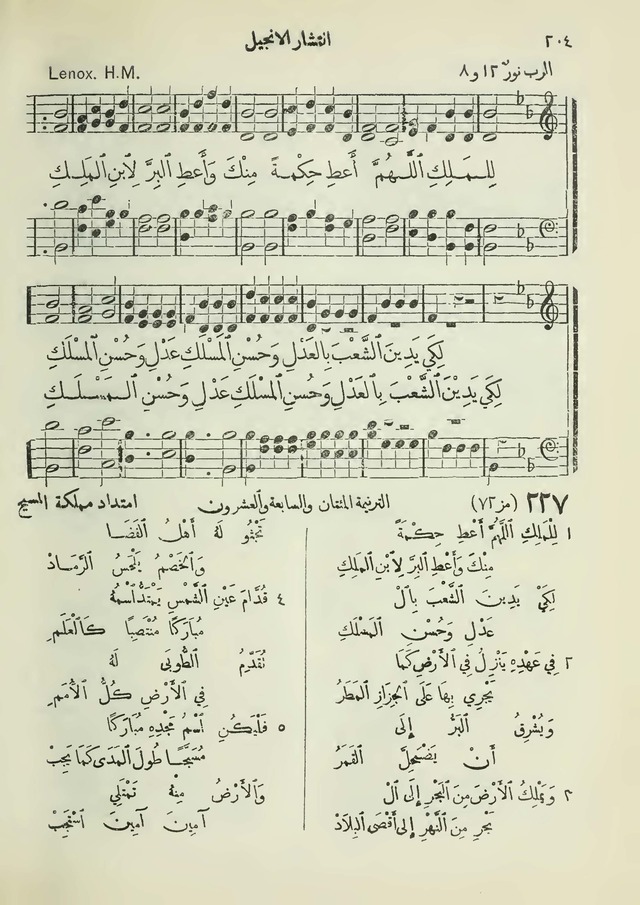 ٢٠٤
انتشار الانجيل
الرب نور ١٢ و ٨
Lenox. H.M.
لِلمَلِكِ اَللّٰهُمَّ أَعطِ حِكْمَةً مِنْكَ وَأَعطِ البِرَّ لِابنِ المَلِيكِ
لِكَي يَدِينَ الشَّعْبَ بِالعَدْلِ وَحُسْنِ المَسْلَكِ عَدْلِ وَحُسْنِ المَسْلَكِ
لِكَي يَدِينَ الشَّعْبَ بِالعَدْلِ وَحُسْنِ المَسْلَكِ عَدْلِ وَحُسْنِ المَسْلَكِ
٢٢٧ (مز ٧٢) الترنيمة المئتان والسابعة والعشرون امتداد مملكة المسيح
١ لِلْمَلِكِ اللّٰهُمَّ أَعْطِ حِكْمَةً
مِنْكَ وَأَعْطِ البِرَّ لِابْنِ المَلِكِ
لِكَيْ يَدِينَ الشَّعْبَ بِالْ
عَدْلِ وَحُسْنِ المَسْلَكِ
٢ فِي عَهْدِهِ يَنْزِلُ فِي الأَرْضِ كَمَا
يَجْرِي بِهَا عَلَى الجِزَازِ المَطَرُ
وَيُشْرِقُ البَرُّ إِلَى
أَنْ يَضْمَحِلَّ القَمَرُ
٣ وَيَمْلِكُ الأَرْضَ مِنَ البَحْرِ إِلَى الْ
بَحْرِ مِنَ النَّهْرِ إِلَى أَقْصَى البِلَادْ
تَجْثُو لَهُ أَهْلُ الفَضَا
وَالخَصْمُ يَلْحَسُ الرَّمَادْ
٤ قُدَّامَ عَيْنِ الشَّمْسِ يَمْتَدُّ اسْمُهُ
مُبَارَكًا مُنْتَصِبًا كَالعَلَمِ
نُقَدِّمُ الطُّوبَى لَهُ
فِي الأَرْضِ كُلُّ الأُمَمِ
٥ فَلْيَكُنِ اسْمُ مَجْدِهِ مُبَارَكًا
مُسَبَّحًا طُولَ المَدَى كَمَا يَجِبْ
وَالأَرْضُ مِنْهُ تَمْتَلِي
آمِينَ آمِينَ اسْتَجِبْ